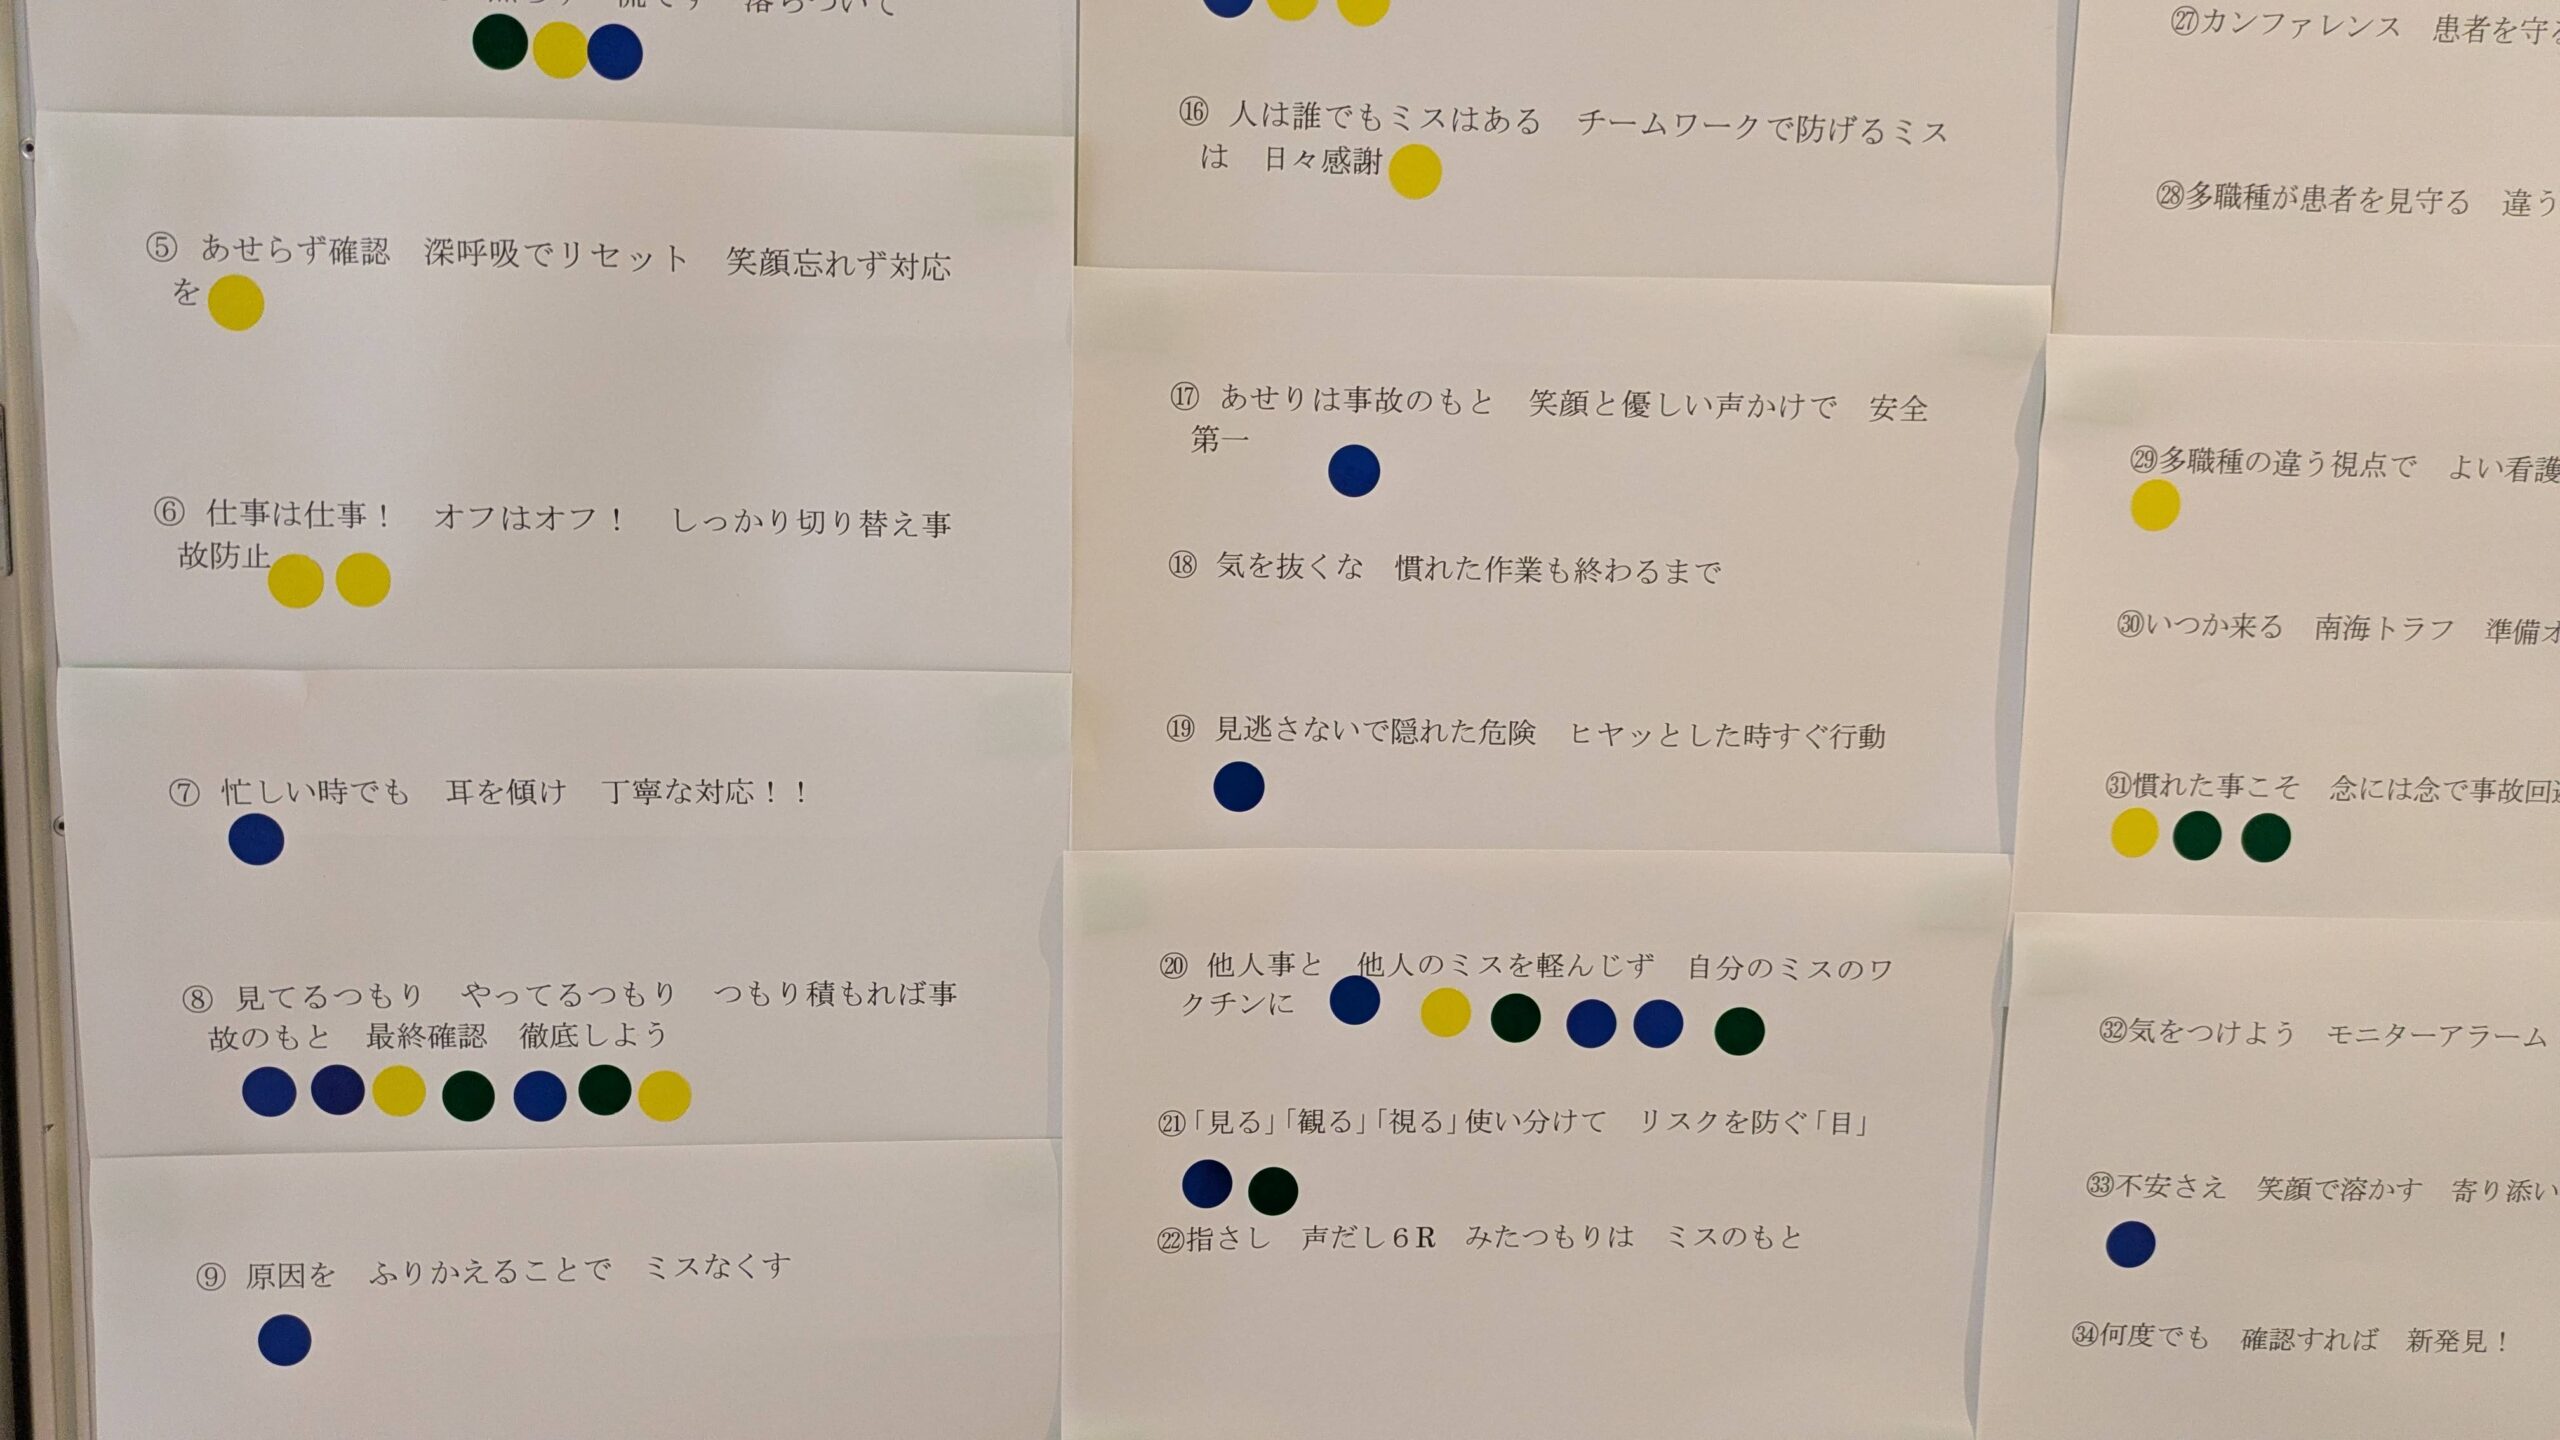 落ちついて
⑤ あせらず確認　深呼吸でリセット　笑顔忘れず対応
を
⑥ 仕事は仕事！　オフはオフ！　しっかり切り替え事
故防止
⑦ 忙しい時でも　耳を傾け　丁寧な対応！！
⑧ 見てるつもり　やってるつもり　つもり積もれば事
故のもと　最終確認　徹底しよう
⑨ 原因を　ふりかえることで　ミスなくす
⑯ 人は誰でもミスはある　チームワークで防げるミス
は　日々感謝
⑰ あせりは事故のもと　笑顔と優しい声かけで　安全
第一
⑱ 気を抜くな　慣れた作業も終わるまで
⑲ 見逃さないで隠れた危険　ヒヤッとした時すぐ行動
⑳ 他人事と　他人のミスを軽んじず　自分のミスのワ
クチンに
㉑「見る」「観る」「視る」使い分けて　リスクを防ぐ「目」
㉒指さし　声だし６R　みたつもりは　ミスのもと
㉗カンファレンス　患者を守る
㉘多職種が患者を見守る　違う
㉙多職種の違う視点で　よい看護
㉚いつか来る　南海トラフ　準備オ
㉛慣れた事こそ　念には念で事故回避
㉜気をつけよう　モニターアラーム
㉝不安さえ　笑顔で溶かす　寄り添い
㉞何度でも　確認すれば　新発見！